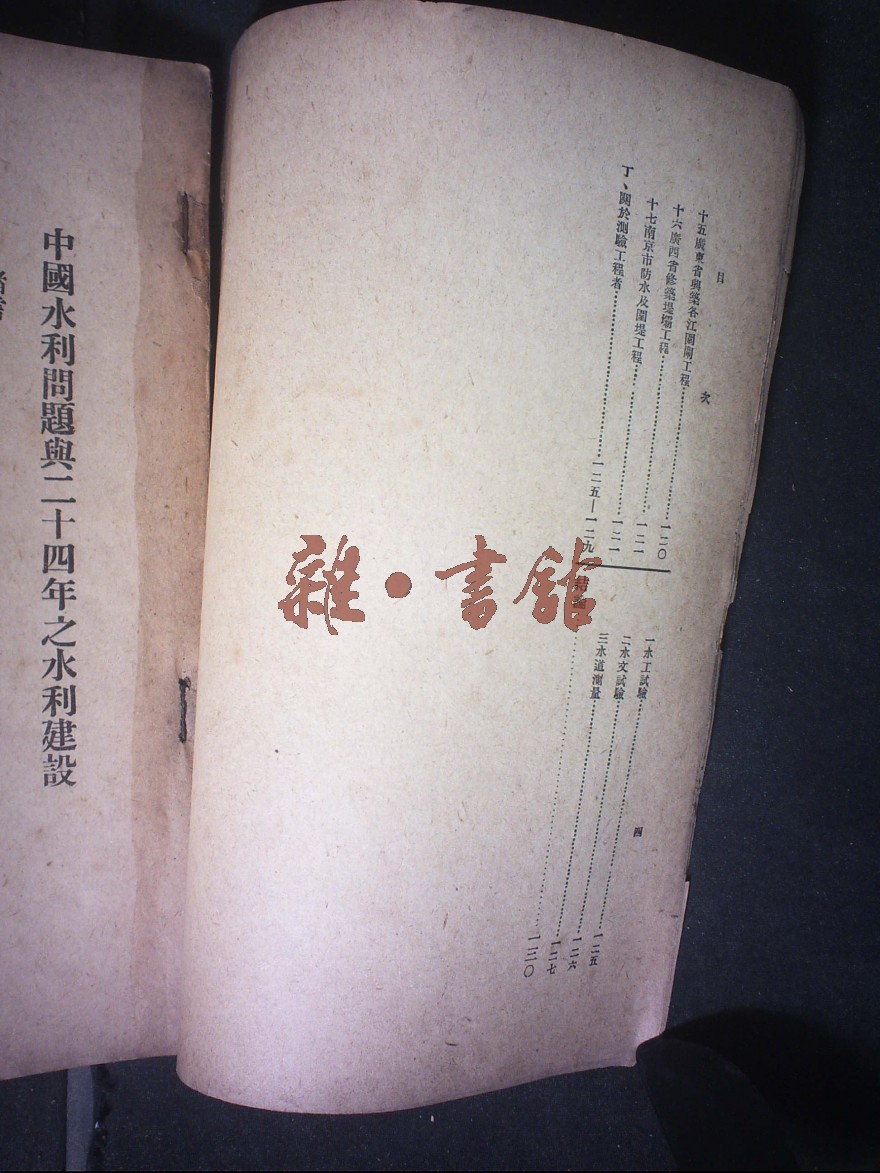 目次
四
十五廣東省興築各江圍閘工程……一二〇
十六廣西省修築堤壩工程……一二一
十七南京市防水及圍堤工程……一二一
丁、關於測驗工程者……一二五—一二九
一水工試驗……一二五
二水文試驗……一二六
三水道測量……一二七
結論……一三〇
中國水利問題與二十四年之水利建設
雜·書館